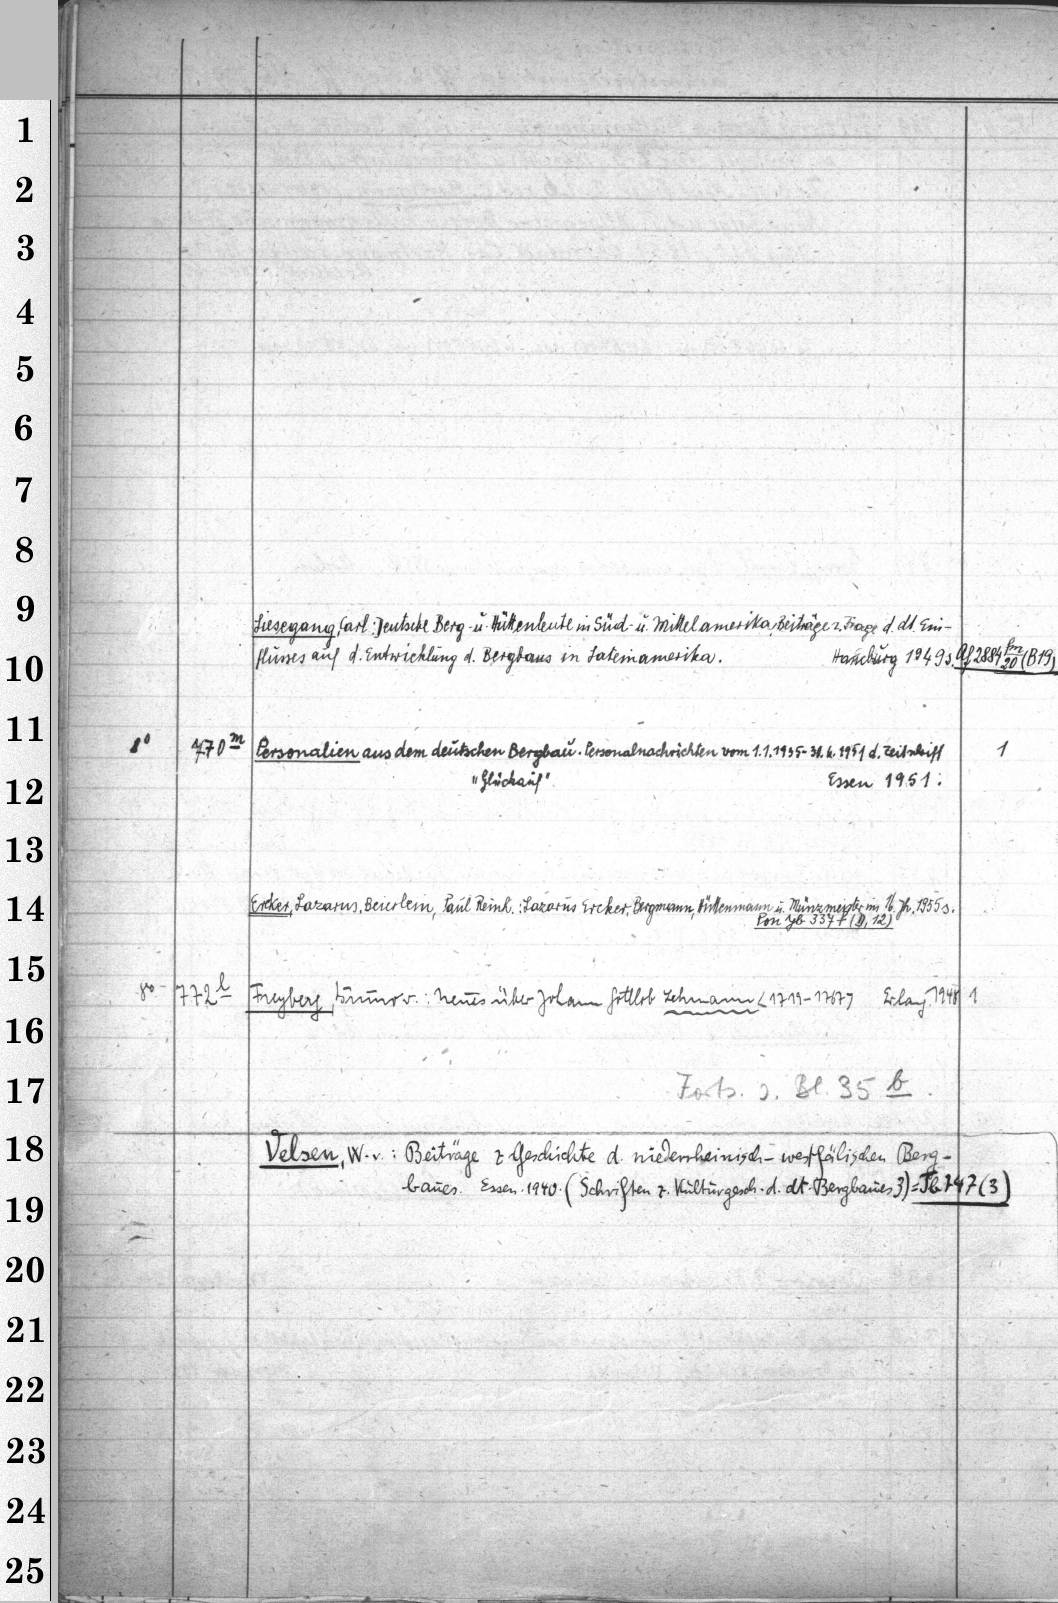 1
2
3
4
5
6
7
8
9
Liesegang, Carl: Deutsche Berg- u. Hüttenleute in Süd- u. Mittelamerika, Beiträge z. Frage d. dt. Ein-
10
flusses auf d. Entwicklung d. Bergbaus in Lateinamerika. Hamburg 1949 s. Af 2884 20 (B19)
11
8° 770 m Personalien aus dem deutschen Bergbau. Personalnachrichten vom 1.1.1935-31.6.1951 d. Zeitschrift 1
12
"Glückauf" Essen 1951.
13
14
Ercker, Lazarus. Beierlein, Paul Reinh.: Lazarus Ercker, Bergmann, Hüttenmann u. Münzmeister im 16. Jh. 1955 s.
Pon Yb 337 f (D, 12)
15
8° 772 l Freyberg, Bruno v.: Neues über Johann Gottlob Lehmann <1719-1767> Erlang. 1948 1
16
17
Forts. s. Bl. 35 b.
18
Velsen, W. v.: Beiträge z Geschichte d. niederrheinisch-westfälischen Berg-
19
baues. Essen 1940. (Schriften z. Kulturgesch. d. dt. Bergbaues 3) = Tb 747 (3)
20
21
22
23
24
25